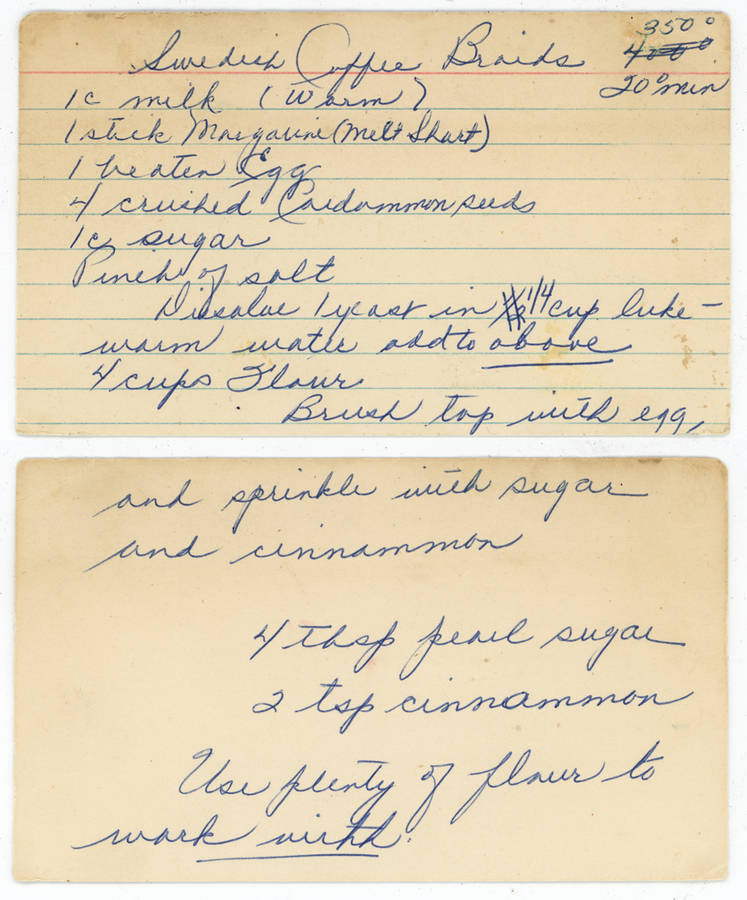 350°
Swedish Coffee Braids 400°
1c milk (warm) 20 min
1 stick Margarine (Melt Short)
1 beaten Egg
4 crushed Cardammon seeds
1c sugar
Pinch of salt
Dissolve 1 yeast in 1/4 cup luke-
warm water add to above
4 cups Flour
Brush top with egg,
and sprinkle with sugar
and cinnammon
4 tbsp pearl sugar
2 tsp cinnammon
Use plenty of flour to
work with.